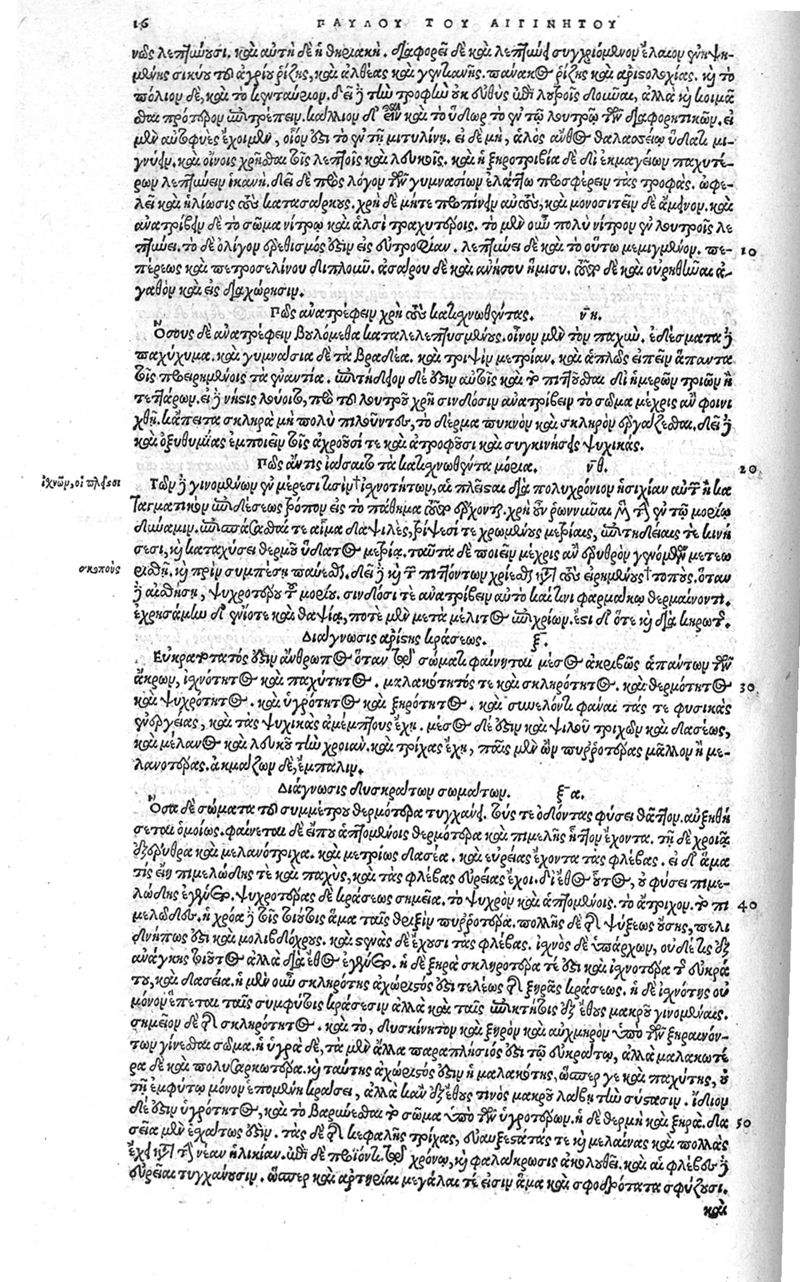 16 ΠΑΥΛΟΥ ΤΟΥ ΑΙΓΙΝΗΤΟΥ
νῶς λεπτύνουσι. καὶ αὐτὴ δὲ ἡ θηριακή. διαφορεῖ δὲ καὶ λεπτύνει συγχριόμενον ἔλαιον ἐνηψη-
μένης σικύου τοῦ ἀγρίου ῥίζης, καὶ ἀλθέας καὶ γεντιανῆς. πάνακος ῥίζης καὶ ἀριστολοχίας. καὶ τὸ
πόλιον δὲ, καὶ τὸ κενταύριον. δεῖ δὲ τὴν τροφὴν οὐκ εὐθὺς ἐπὶ λουτροῖς διδόναι, ἀλλὰ καὶ κοιμᾶ
σθαι πρότερον ἐπιτρέπειν. κάλλιον δ' εἶναι καὶ τὸ ὕδωρ τὸ ἐν τῷ λουτρῷ τῶν διαφορητικῶν. εἰ
μὲν αὐτοφυὲς ἔχοιμεν, οἷόν ἐστι τὸ ἐν τῇ μιτυλίνῃ. εἰ δὲ μὴ, ἁλὸς ἄνθος θαλασσείῳ ὕδατι μι-
γνύειν. καὶ οἴνοις χρῆσθαι τοῖς λεπτοῖς καὶ λευκοῖς. καὶ ἡ ξηροτριβία δὲ δι' ἐκμαγείων παχυτέ-
ρων λεπτύνειν ἱκανή. δεῖ δὲ πρὸς λόγον τῶν γυμνασίων ἐλάττω προσφέρειν τὰς τροφάς. ὠφε-
λεῖ καὶ ἡλίωσις τοὺς κατασάρκους. χρὴ δὲ μήτε προπίνειν αὐτοὺς, καὶ μονοσιτεῖν δὲ ἄμεινον. καὶ
ἀνατρίβειν δὲ τὸ σῶμα νίτρῳ καὶ ἁλσὶ τραχυτέροις. τὸ μὲν οὖν πολὺ νίτρον ἐν λουτροῖς λε
πτύνει. τὸ δὲ ὀλίγον ἐρεθισμός ἐστιν εἰς εὐτροφίαν. λεπτύνει δὲ καὶ τὸ οὕτω μεμιγμένον. πε- 10
πέρεως καὶ πετροσελίνου διπλοῦν. ἀσάρου δὲ καὶ ἀνήσου ἥμισυ. τοῦτο δὲ καὶ οὐρηθῆναι ἀ-
γαθὸν καὶ εἰς διαχώρησιν.
Πῶς ἀνατρέφειν χρὴ τοὺς κατιχνωθέντας. νη.
Ὅσους δὲ ἀνατρέφειν βουλόμεθα καταλελεπτυσμένους. οἶνον μὲν τὸν παχὺν. ἐδέσματα δὲ
παχύχυμα. καὶ γυμνάσια δὲ τὰ βραδέα. καὶ τρίψιν μετρίαν. καὶ ἁπλῶς εἰπεῖν ἅπαντα
τοῖς προειρημένοις τὰ ἐναντία. ἐπιτήδειον δέ ἐστιν αὐτοῖς καὶ τὸ πιττοῦσθαι δι' ἡμερῶν τριῶν ἢ
τεττάρων. εἰ δὲ νήστις λούοιτο, πρὸ τοῦ λουτροῦ χρὴ σινδόσιν ἀνατρίβειν τὸ σῶμα μέχρις ἂν φοινι
χθῇ. κἄπειτα σκληρὰ μὴ πολὺ πιλοῦντας, τὸ δέρμα πυκνὸν καὶ σκληρὸν ἐργάζεσθαι. δεῖ δὲ
καὶ ὀξυθυμίας ἐμποιεῖν τοῖς ἀχροοῦσί τε καὶ ἀτροφοῦσι καὶ συγκινήσεις ψυχικάς.
Πῶς ἄν τις ἰάσαιτο τὰ κατιχνωθέντα μόρια. νθ. 20
ἰχνῶν, οἱ πλεῖστοι
Τῶν δὲ γινομένων ἐν μέρεσί τισιν †ἰχνοτήτων, αἱ πλεῖσται διὰ πολυχρόνιον ἡσυχίαν αὐτῶν ἢ κα
ταγματικὴν ἐπιδέσεως τρόπον εἰς τὸ πάθημα τοῦτο ἔρχονται. χρὴ οὖν ῥωννῦναι μὲν τὴν ἐν τῷ μορίῳ
δύναμιν. ἐπισπᾶσθαί τε αἷμα δαψιλὲς, τρίψεσί τε χρωμένους μετρίαις, ἐπιτηδείαις τε κινή
σεσι, καὶ καταχύσει θερμοῦ ὕδατος μετρίᾳ. ταῦτα δὲ ποιεῖν μέχρις ἂν ἐρυθρὸν γενόμενον μετεω
σκοποὺς
ρισθῇ. καὶ πρὶν συμπέσῃ παύεσθαι. δεῖ δὲ καὶ τῶν πιττούντων χρίεσθαι κατὰ τοὺς εἰρημένους †τόπους. ὅταν
δὲ αἴσθησιν, ψυχροτέρου τοῦ μορίου. σινδόσι τε ἀνατρίβειν αὐτὸ καί τινι φαρμάκῳ θερμαίνοντι.
ἐχρησάμην δ' ἐνίοτε καὶ θαψίᾳ, ποτὲ μὲν μετὰ μέλιτος ἐπιχρίων. ἔστι δ' ὅτε καὶ διὰ κηρωτῆς.
Διάγνωσις ἀρίστης κράσεως. ξ.
Εὐκρατότατός ἐστιν ἄνθρωπος ὅταν τῷ σώματι φαίνηται μέσος ἀκριβῶς ἁπάντων τῶν
ἄκρων, ἰχνότητος καὶ παχύτητος. μαλακότητός τε καὶ σκληρότητος. καὶ θερμότητος 30
καὶ ψυχρότητος. καὶ ὑγρότητος καὶ ξηρότητος. καὶ συνελόντι φάναι τάς τε φυσικὰς
ἐνεργείας, καὶ τὰς ψυχικὰς ἀμέμπτους ἔχῃ. μέσος δέ ἐστιν καὶ ψιλοῦ τριχῶν καὶ δασέως,
καὶ μέλανος καὶ λευκοῦ τὴν χροιάν. καὶ τρίχας ἔχῃ, παῖς μὲν ὢν πυρροτέρας μᾶλλον ἢ με-
λανοτέρας. ἀκμάζων δὲ, ἔμπαλιν.
Διάγνωσις δυσκράτων σωμάτων. ξα.
Ὅσα δὲ σώματα τοῦ συμμέτρου θερμότερα τυγχάνει. τούς τε ὀδόντας φύσει θᾶττον. αὐξηθή
σεται ὁμοίως. φαίνεται δὲ εἴπου ἁπτομένοις θερμότερα καὶ πιμελῆς ἧττον ἔχοντα. τῇ δὲ χροιᾷ
ἐξέρυθρα καὶ μελανότριχα. καὶ μετρίως δασέα. καὶ εὐρείας ἔχοντα τὰς φλέβας. εἰ δ' ἅμα
τις εἴη πιμελώδης τε καὶ παχὺς, καὶ τὰς φλέβας εὐρείας ἔχοι. δι' ἔθος οὗτος, οὐ φύσει πιμε-
λώδης ἐγένετο. ψυχροτέρας δὲ κράσεως σημεῖα. τὸ ψυχρὸν καὶ ἁπτομένοις. τὸ ἄτριχον. τὸ πι 40
μελῶδες. ἡ χρόα δὲ τοῖς τοιούτοις ἅμα ταῖς θριξὶν πυρροτέρα. πολλῆς δὲ τῆς ψύξεως οὔσης, πελι
δνή πώς ἐστι καὶ μολιβδόχρους. καὶ στενὰς δὲ ἔχουσι τὰς φλέβας. ἰχνὸς δὲ ὑπάρχων, οὐδεὶς ἐξ
ἀνάγκης τοιοῦτος ἀλλὰ διὰ ἔθος ἐγένετο. ἡ δὲ ξηρὰ σκληροτέρα τέ ἐστι καὶ ἰχνοτέρα τοῦ εὐκρά
του, καὶ δασεῖα. ἡ μὲν οὖν σκληρότης ἀχώριστός ἐστι τελέως τῆς ξηρᾶς κράσεως. ἡ δὲ ἰχνότης οὐ
μόνον ἕπεται ταῖς συμφύτοις κράσεσιν ἀλλὰ καὶ ταῖς ἐπικτήτοις ἐξ ἔθους μακροῦ γινομέναις.
σημεῖον δὲ τῆς σκληρότητος. καὶ τὸ, δυσκίνητον καὶ ξηρὸν καὶ αὐχμηρὸν ὑπὸ τῶν ξηραινόν-
των γίνεσθαι σῶμα. ἡ ὑγρὰ δὲ, τὰ μὲν ἄλλα παραπλήσιός ἐστι τῷ εὐκράτῳ, ἀλλὰ μαλακωτέ
ρα δὲ καὶ πολυσαρκωτέρα. καὶ ταύτης ἀχώριστός ἐστιν ἡ μαλακότης, ὥσπερ γε καὶ παχύτης, οὐ
τῇ ἐμφύτῳ μόνον ἑπομένη κράσει, ἀλλὰ κἂν ἐξ ἔθους τινὸς μακροῦ λάβῃ τὴν σύστασιν. ἴδιον
δέ ἐστιν ὑγρότητος, καὶ τὸ βαρύνεσθαι τὸ σῶμα ὑπὸ τῶν ὑγροτέρων. ἡ δὲ θερμὴ καὶ ξηρὰ. δα 50
σεῖα μὲν ἐσχάτως ἐστίν. τὰς δὲ τῆς κεφαλῆς τρίχας, εὐαυξεστάτας τε καὶ μελαίνας καὶ πολλὰς
ἔχει κατὰ τὴν νέαν ἡλικίαν. ἐπὶ δὲ προϊόντι τῷ χρόνῳ, καὶ φαλάκρωσις ἀκολουθεῖ. καὶ αἱ φλέβες δὲ
εὐρεῖαι τυγχάνουσιν. ὥσπερ καὶ ἀρτηρίαι μεγάλαι τέ εἰσιν ἅμα καὶ σφοδρότατα σφύζουσι.
καὶ